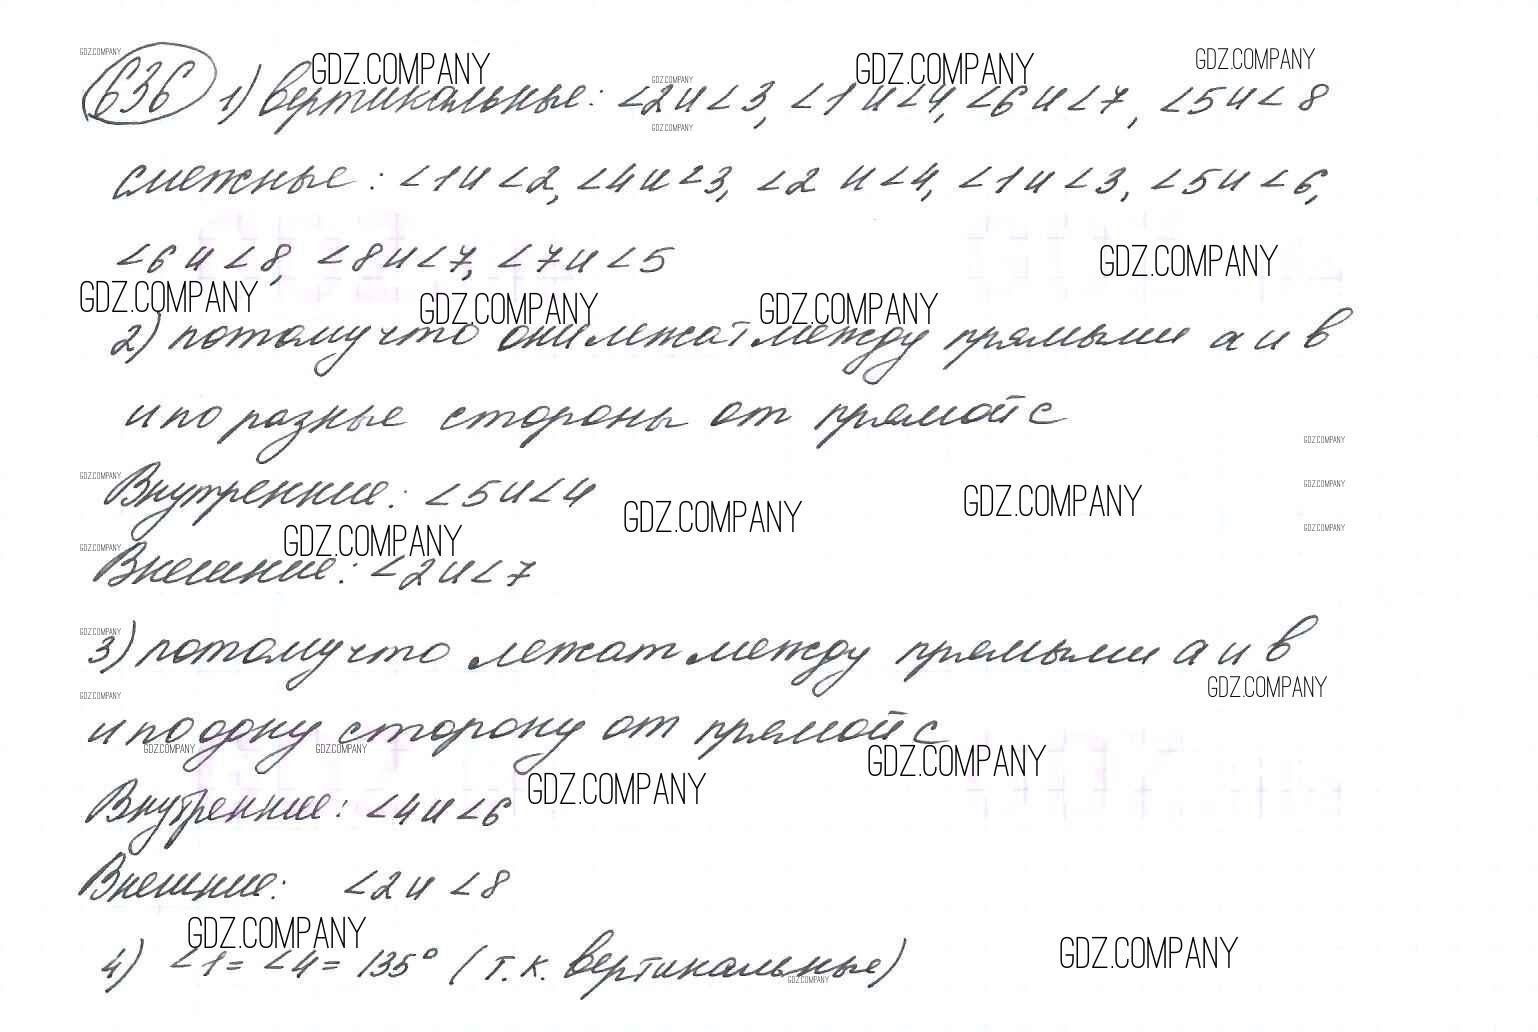 GDZ.COMPANY GDZ.COMPANY GDZ.COMPANY GDZ.COMPANY GDZ.COMPANY
636 1) вертикальные: ∠2 и ∠3, ∠1 и ∠4, ∠6 и ∠7, ∠5 и ∠8
GDZ.COMPANY
смежные: ∠1 и ∠2, ∠4 и ∠3, ∠2 и ∠4, ∠1 и ∠3, ∠5 и ∠6,
∠6 и ∠8, ∠8 и ∠7, ∠7 и ∠5
GDZ.COMPANY
GDZ.COMPANY GDZ.COMPANY GDZ.COMPANY
2) потому что они лежат между прямыми а и в
и по разные стороны от прямой с
GDZ.COMPANY
GDZ.COMPANY GDZ.COMPANY
Внутренние: ∠5 и ∠4
GDZ.COMPANY GDZ.COMPANY
GDZ.COMPANY GDZ.COMPANY GDZ.COMPANY
Внешние: ∠2 и ∠7
GDZ.COMPANY
3) потому что лежат между прямыми а и в
GDZ.COMPANY GDZ.COMPANY
и по одну сторону от прямой с
GDZ.COMPANY GDZ.COMPANY GDZ.COMPANY
GDZ.COMPANY
Внутренние: ∠4 и ∠6
Внешние: ∠2 и ∠8
GDZ.COMPANY GDZ.COMPANY
4) ∠1 = ∠4 = 135° (т.к. вертикальные)
GDZ.COMPANY